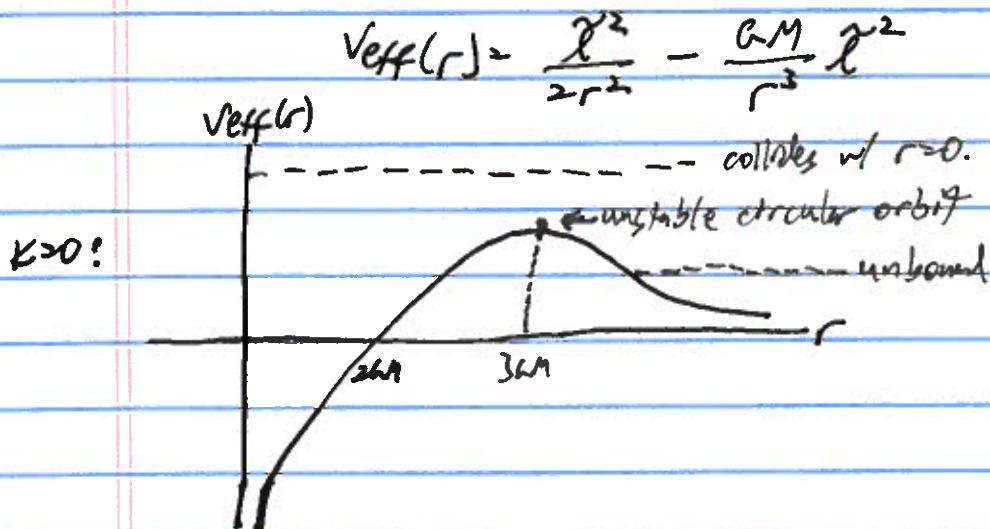 Veff(r) = \frac{\tilde{l}^2}{2r^2} - \frac{GM}{r^3} \tilde{l}^2
Veff(r)
collides w/ r=0.
unstable circular orbit
K=0:
unbound
r
2GM
3GM